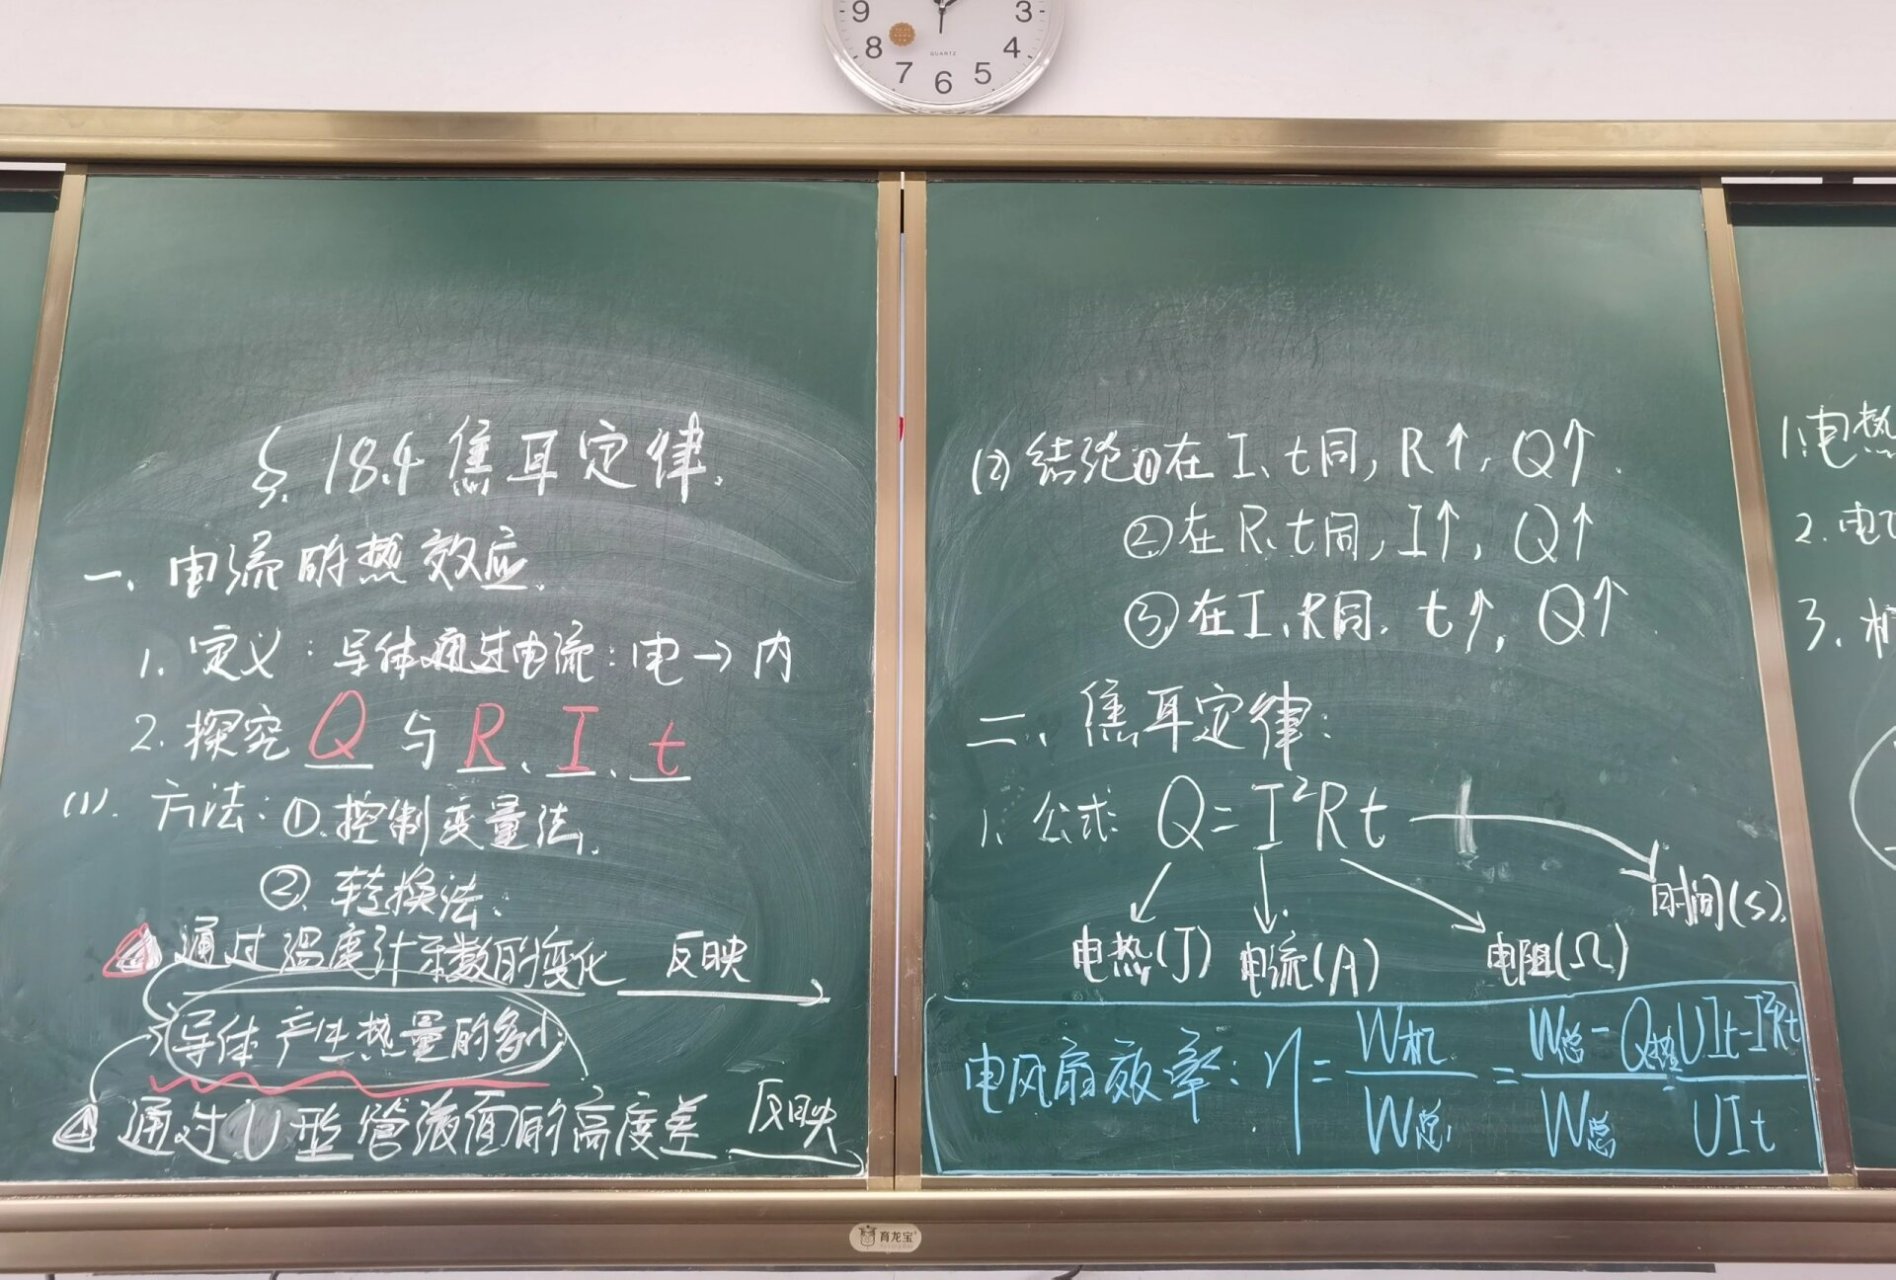 9 3
8 4
7 6 5
QUARTZ
§. 18.4 焦耳定律.
一、电流的热效应.
1. 定义:导体通过电流:电→内
2. 探究 Q 与 R、I、t
(1). 方法:①.控制变量法.
②. 转换法.
通过温度计示数的变化 反映
导体产生热量的多少
通过U型管液面的高度差 反映
(2) 结论①在I、t同, R↑, Q↑.
②在R、t同, I↑, Q↑
③在I、R同. t↑, Q↑.
二、焦耳定律:
1. 公式 Q=I²Rt
时间(s).
电热(J) 电流(A) 电阻(Ω)
电风扇效率: η = W机/W总 = W总-Q热/W总 = UIt-I²Rt/UIt
1.电热
2.电
3.
育龙宝